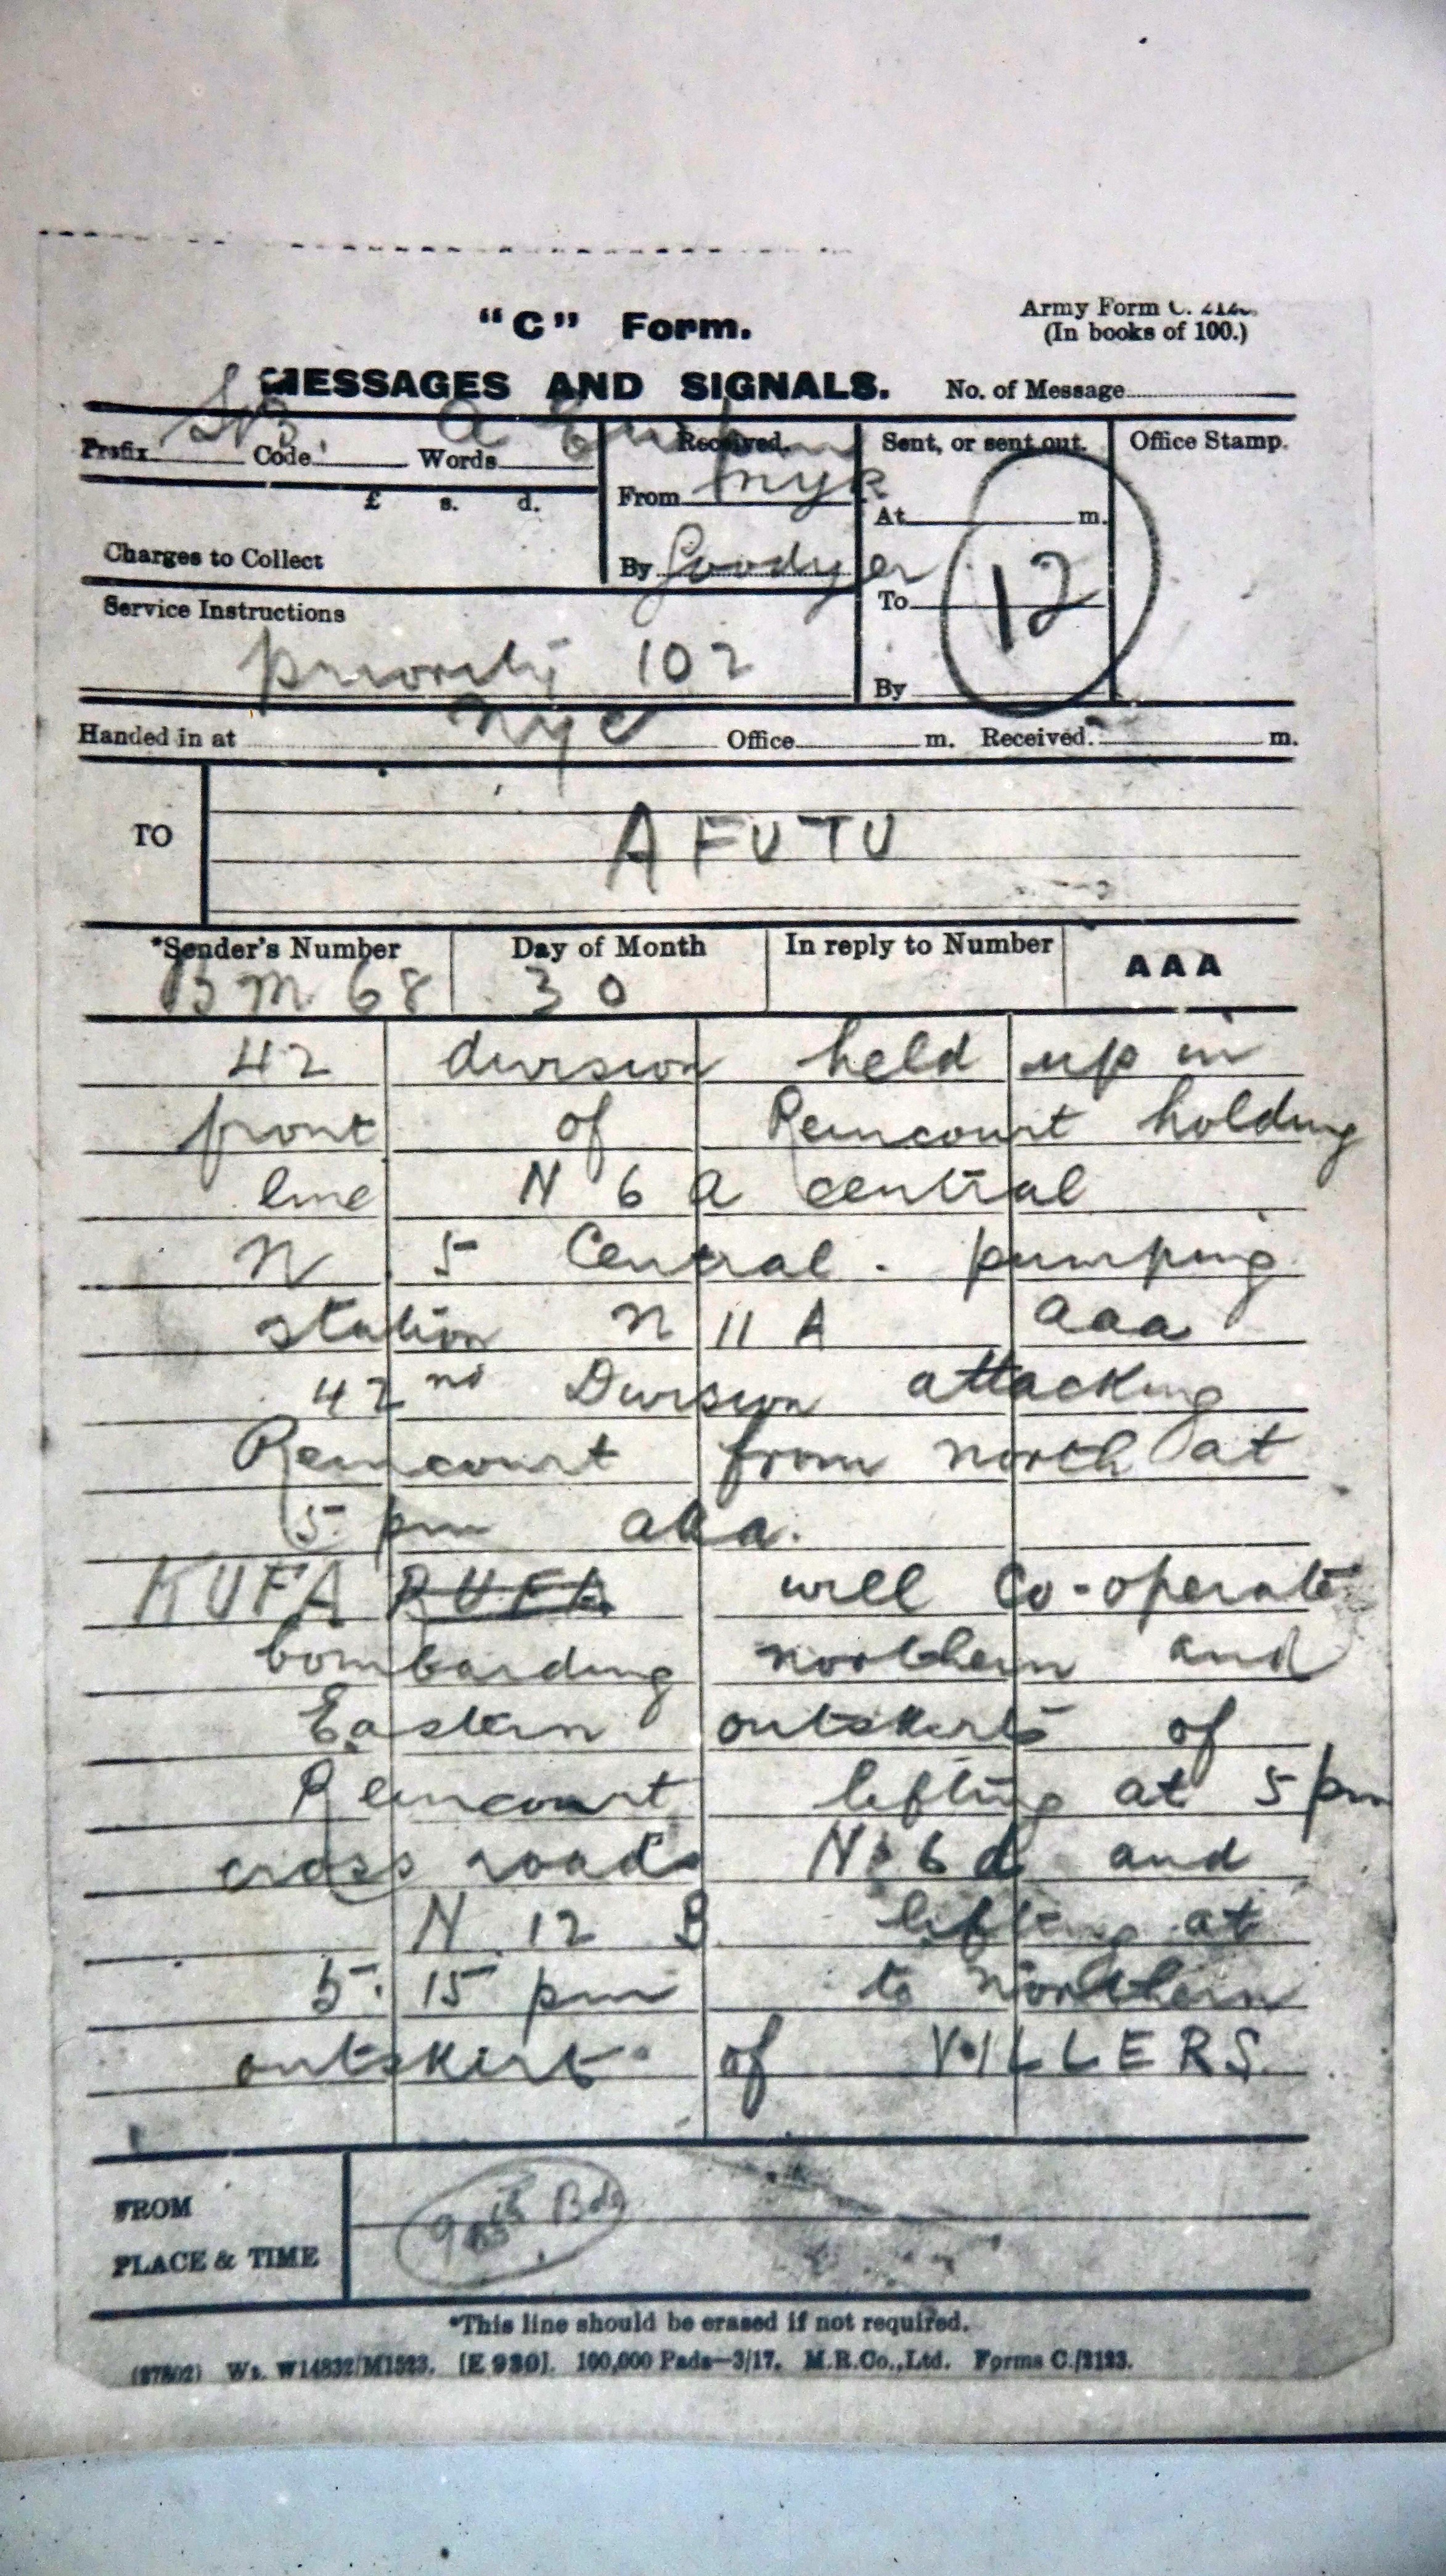 "C" Form.
Army Form C.
(In books of 100.)
MESSAGES AND SIGNALS. No. of Message
Prefix Code Words
Received. Sent, or sent out. Office Stamp.
£ s. d.
From
At m.
Charges to Collect
By Goodyer
12
To
Service Instructions
priority 102
By
Handed in at Office m. Received. m.
TO
AFUTU
*Sender's Number Day of Month In reply to Number AAA
BM 68 30
42 division held up in
front of Reincourt holding
line N 6 a central
N 5 Central . pumping
station N 11 A aaa
42nd Division attacking
Reincourt from north at
5 pm aaa.
KUFA RUFA will co-operate
bombarding northern and
Eastern outskirts of
Reincourt lifting at 5 pm
cross roads N 6 d and
N 12 B lifting at
5. 15 pm to northern
outskirts of VILLERS
FROM
PLACE & TIME
Bde
*This line should be erased if not required.
(27802) Wt. W14832/M1523. [E 930]. 100,000 Pads—3/17. M.R.Co.,Ltd. Forms C./2123.